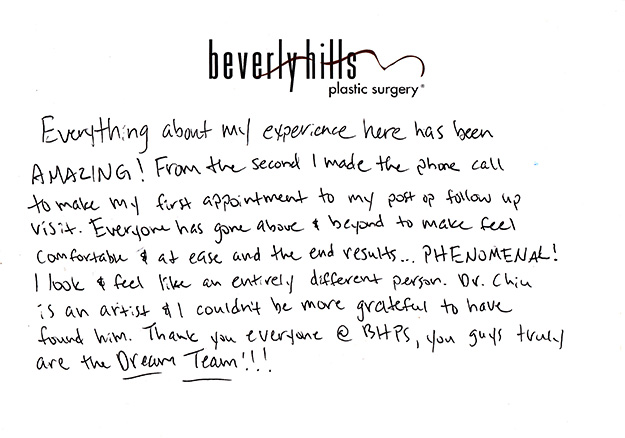 beverly hills
plastic surgery®
Everything about my experience here has been
AMAZING! From the second I made the phone call
to make my first appointment to my post op follow up
visit. Everyone has gone above & beyond to make feel
comfortable & at ease and the end results... PHENOMENAL!
I look & feel like an entirely different person. Dr. Chiu
is an artist & I couldn't be more grateful to have
found him. Thank you everyone @ BHPS, you guys truly
are the Dream Team!!!